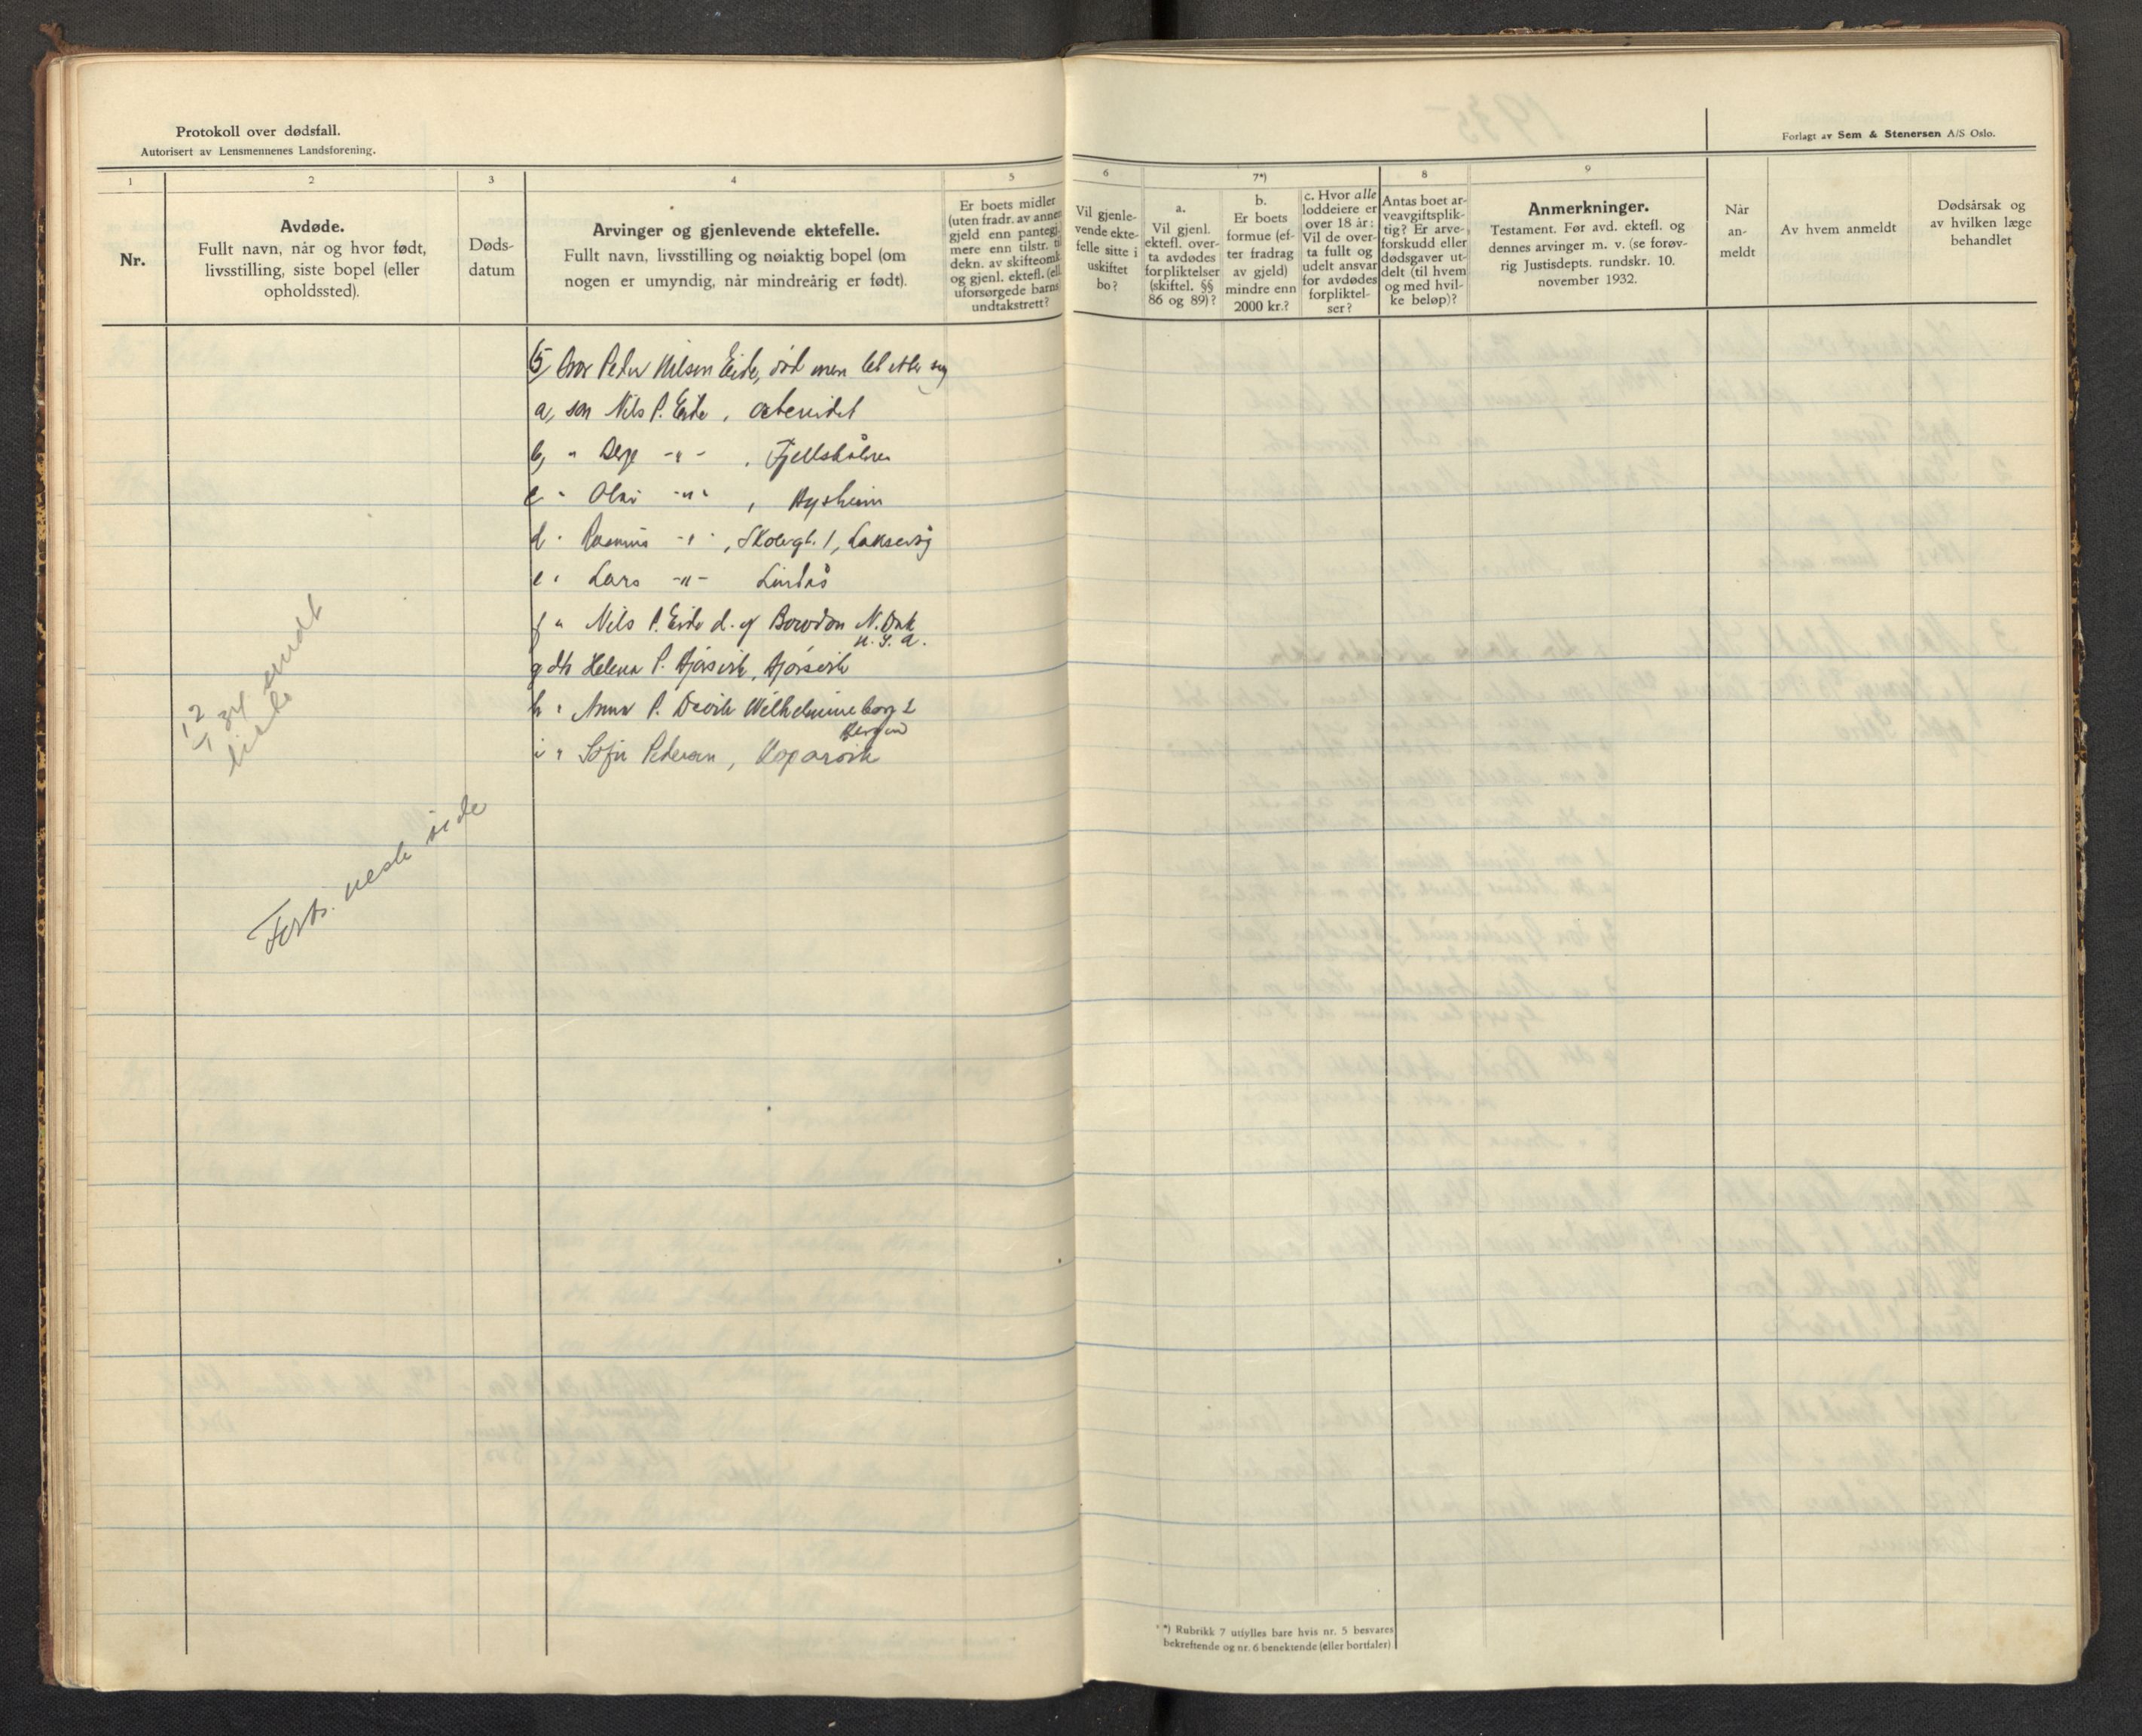 Protokoll over dødsfall.
Autorisert av Lensmennenes Landsforening.
Forlagt av Sem & Stenersen A/S Oslo.
1
2
3
4
5
6
7*)
8
9
Nr.
Avdøde.
Fullt navn, når og hvor født,
livsstilling, siste bopel (eller
opholdssted).
Døds-
datum
Arvinger og gjenlevende ektefelle.
Fullt navn, livsstilling og nøiaktig bopel (om
nogen er umyndig, når mindreårig er født).
Er boets midler
(uten fradr. av annen
gjeld enn pantegj.)
mere enn tilstr. til
dekn. av skifteomk.
og gjenl. ektefl. (ell.
uforsørgede barns)
undtakstrett?
Vil gjenle-
vende ekte-
felle sitte i
uskiftet
bo?
a.
Vil gjenl.
ektefl. over-
ta avdødes
forpliktelser
(skiftel. §§
86 og 89)?
b.
Er boets
formue (ef-
ter fradrag
av gjeld)
mindre enn
2000 kr.?
c. Hvor alle
loddeiere er
over 18 år:
Vil de over-
ta fullt og
udelt ansvar
for avdødes
forpliktel-
ser?
Antas boet ar-
veavgiftsplik-
tig? Er arve-
forskudd eller
dødsgaver ut-
delt (til hvem
og med hvil-
ke beløp)?
Anmerkninger.
Testament. Før avd. ektefl. og
dennes arvinger m. v. (se forøv-
rig Justisdepts. rundskr. 10.
november 1932.
Når
an-
meldt
Av hvem anmeldt
Dødsårsak og
av hvilken læge
behandlet
5) bror Peder Nilsen Eide, død men let etter sig
a, søn Nils P. Eide,
b, " -"- , Fjellstålnes
c " Olai -"- ,
d " Rasmus -"- , Skolegt. 1, Laksevåg
e " Lars -"- Lindås
f " Nils P. Eide d. y. N. Dak
U. S. A.
g dtr Helena P.
h " Anna P. Wilhelmineborg 2
Bergen
i " Sofie Pedersen, Kopervik
12/1 34 sendt
liste
Forts. neste side
*) Rubrikk 7 utfylles bare hvis nr. 5 besvares
bekreftende og nr. 6 benektende (eller bortfaler)